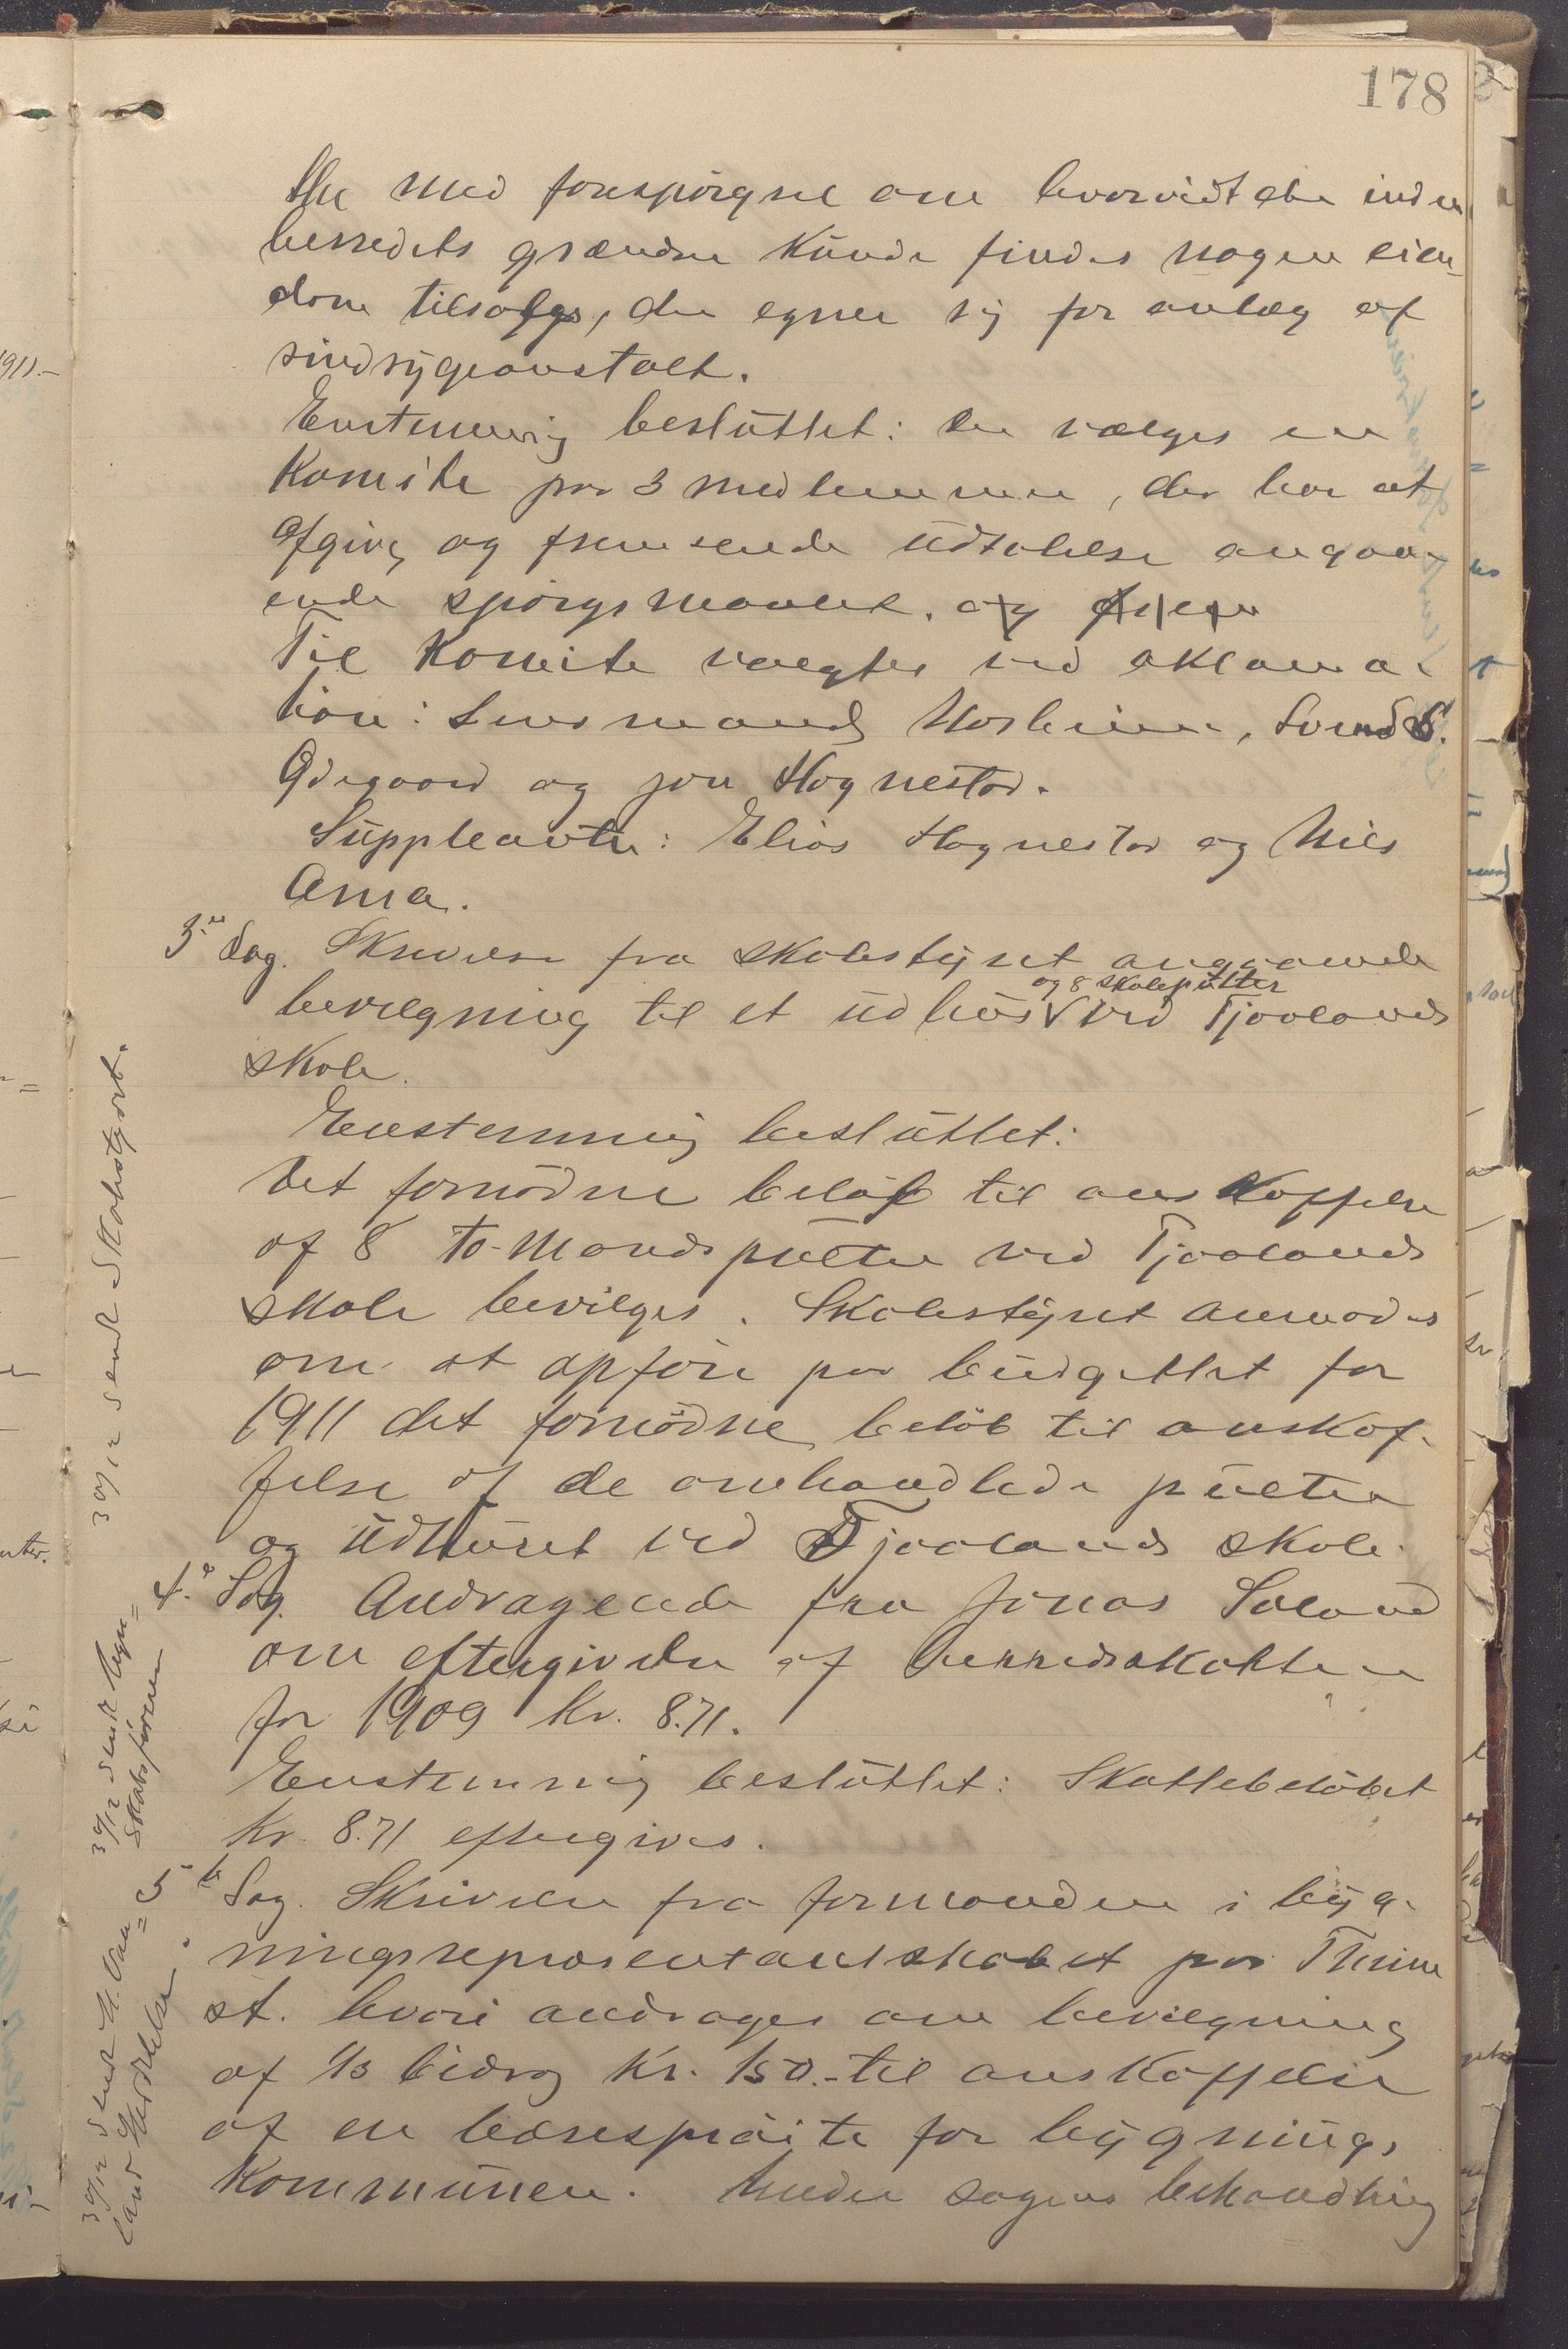 178
med forespörgsel om hvorvidt der inden
herredets grændser kunde findes nogen eien-
dom tilsalgs, der egner sig for anlæg af
sindsygeanstalt.
Enstemmig besluttet: Der vælges en
Komite paa 3 medlemmer, der har at
afgive og fremsende udtalelse angaa-
ende spörgsmaalet. og
Til Komite valgtes ved aklama-
tion: Lensmand Uosheim, Svend S.
Ødegaard og Jon Hognestad.
Suppleanter: Elias Hognestad og Nils
Asma.
3die Sag. Skrivelse fra skolestyret angaaende
og 8 skolepulter
bevilgning til et udhus ved Tjaalands
skole.
Enstemmig besluttet:
Det fornödne belöb til anskaffelse
af 8 to-mandspulter ved Tjaalands
skole bevilges. Skolestyret anmodes
om at opföre paa budgettet for
1911 det fornödne belöb til anskaf-
felse af de omhandlede pulter
og udhuset ved Tjaalands skole.
4de Sag. Andragende fra Jonas Soland
om eftergivelse af herredsskatten
for 1909 kr. 8.71.
Enstemmig besluttet: Skattebelöbet
kr. 8.71 eftergives.
5te Sag. Skrivelse fra formanden i byg-
ningsrepræsentantskabet paa Thime
st. hvori andrages om bevilgning
af 1/3 bidrag kr. 150.- til anskaffelse
af en bærespröite for bygnings
kommunen. Under sagens behandling
30/12 sendt Skolestyret.
30/12 sendt
Skatsföreren
30/12 sendt